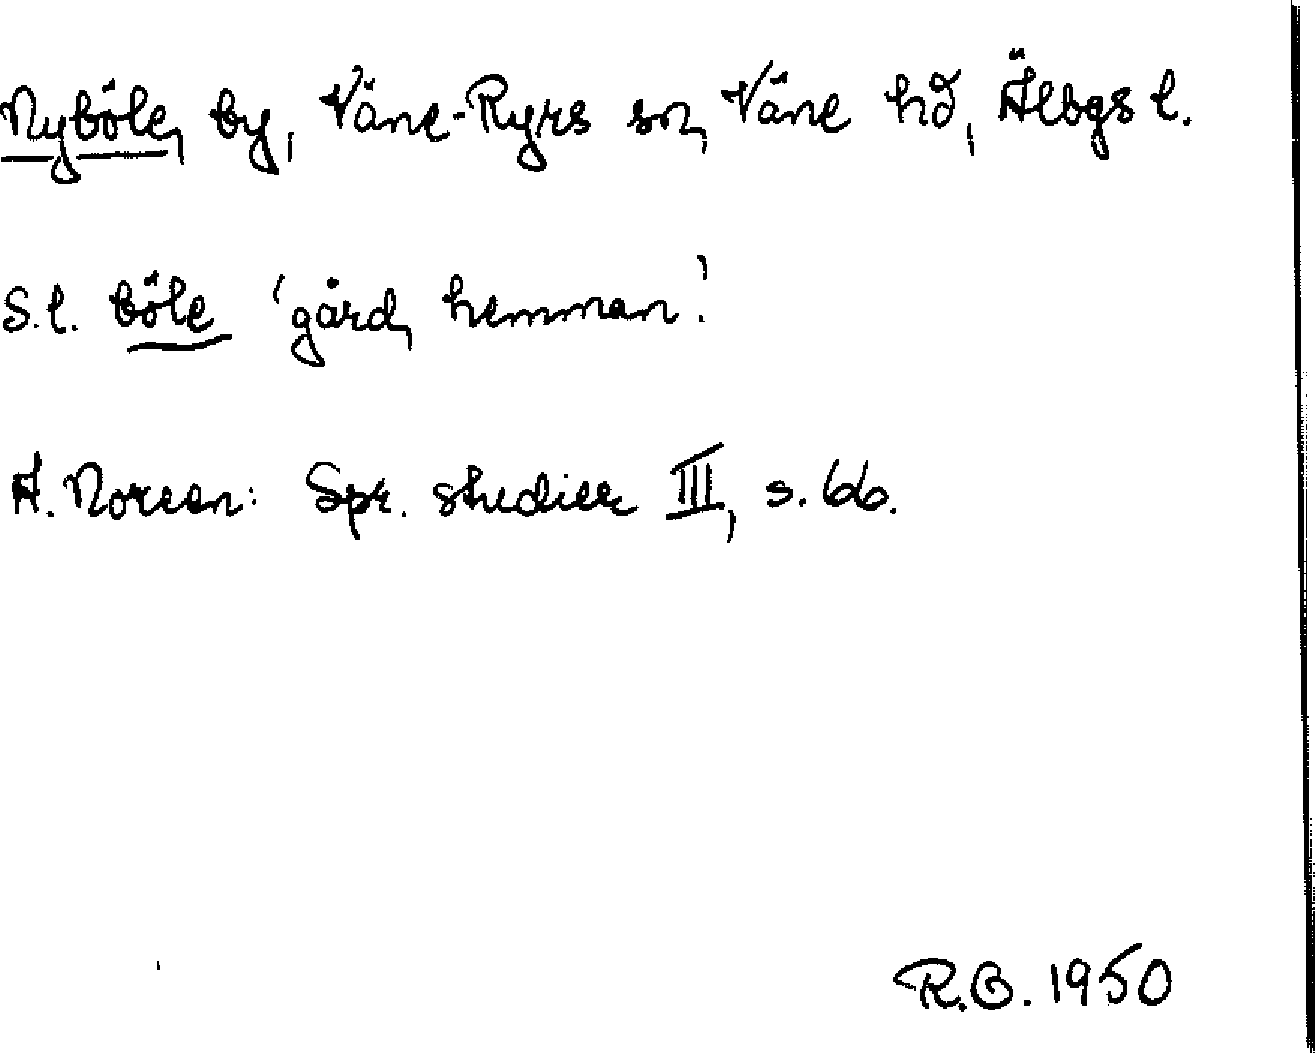 Nyböle, by, Väne-Ryrs sn, Väne hd, Älbgs l.
S.l. böle 'gård, hemman'.
A. Noreen: Spr. studier III, s. 66.
R.B. 1950